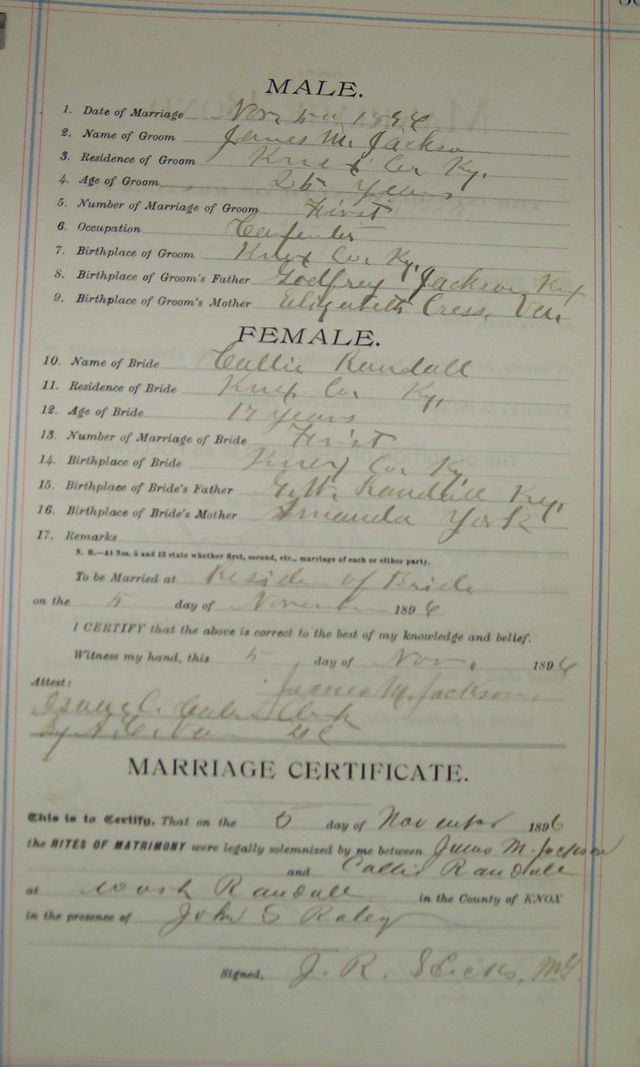 MALE.
1. Date of Marriage Nov, 5th 1896
2. Name of Groom James M. Jackson
3. Residence of Groom Knox Co. Ky.
4. Age of Groom 25 Years
5. Number of Marriage of Groom First
6. Occupation Carpenter
7. Birthplace of Groom Knox Co. Ky.
8. Birthplace of Groom's Father Godfrey Jackson, Ky
9. Birthplace of Groom's Mother Elizabeth Cress, Va.
FEMALE.
10. Name of Bride Callie Randall
11. Residence of Bride Knox Co Ky,
12. Age of Bride 17 years
13. Number of Marriage of Bride First
14. Birthplace of Bride Knox Co. Ky,
15. Birthplace of Bride's Father G.W. Randall Ky,
16. Birthplace of Bride's Mother Amanda York
17. Remarks
N. B.—At Nos. 5 and 13 state whether first, second, etc., marriage of each or either party.
To be Married at Residen of Bride
on the 5 day of November 1896
I CERTIFY that the above is correct to the best of my knowledge and belief.
Witness my hand, this 5 day of Nov, 1896
Attest: James M. Jackson,
Clerk
By
MARRIAGE CERTIFICATE.
This is to Certify, That on the 5 day of November 1896
the RITES OF MATRIMONY were legally solemnized by me between James M. Jackson
and Callie Randall
at Wash Randall in the County of KNOX
in the presence of John S Raley
Signed, J. R. Hicks, M.G.